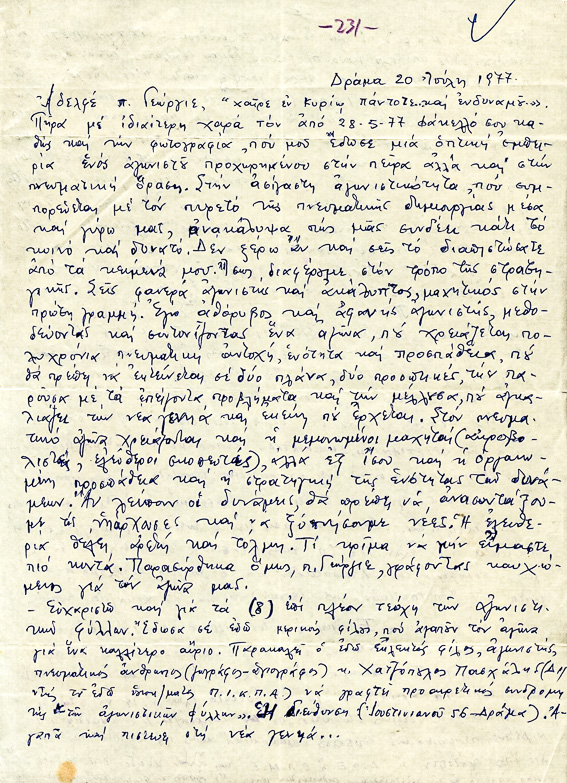 -231-
Δράμα 20 Ιούλη 1977.
Ἀδελφέ π. Γεώργιε, "χαῖρε ἐν Κυρίῳ πάντοτε... καί ἐνδυναμοῦ".
Πῆρα μέ ἰδιαίτερη χαρά τόν ἀπό 28-5-77 φάκελλό σου κα-
θώς καί τήν φωτογραφία, πού μοῦ ἔδωσε μιά ὀπτική ἐμπει-
ρία ἑνός ἀγωνιστῆ προχωρημένου στήν πεῖρα ἀλλά καί στήν
πνευματική δράση. Στήν ἀσίγαστη ἀγωνιστικότητα, πού συμ-
πορεύεται μέ τόν πυρετό τῆς πνευματικῆς δημιουργίας μέσα
καί γύρω μας, ἀνακάλυψα πώς μᾶς συνδέει κάτι τό
κοινό καί δυνατό. Δέν ξέρω ἄν καί σεῖς τό διαπιστώσατε
ἀπό τά κείμενά μου. Ἴσως διαφέρομε στόν τρόπο τῆς στρατη-
γικῆς. Σεῖς φανερά ἀγωνιστής καί ἀκάλυπτος, μαχητικός στήν
πρώτη γραμμή. Ἐγώ ἀθόρυβος καί ἀφανής ἀγωνιστής, μεθο-
δεύοντας καί συντονίζοντας ἕνα ἀγώνα, πού χρειάζεται πο-
λυχρόνια πνευματική ἀντοχή, ἑνότητα καί προσπάθεια, πού
θά πρέπη νά ἐκτείνεται σέ δύο πλάνα, δύο προοπτικές, τήν πα-
ροῦσα μέ τά ἐπείγοντα προβλήματα καί τήν μέλλουσα, πού ἀγκα-
λιάζει τήν νέα γενηά καί ἐκείνη πού ἔρχεται. Στόν πνευμα-
τικό ἀγώνα χρειάζονται καί οἱ μεμονωμένοι μαχηταί (ἀκροβο-
λισταί, ἐλεύθεροι σκοπευταί), ἀλλά ἐξ ἴσου καί ἡ ὀργανω-
μένη προσπάθεια καί ἡ στρατηγική τῆς ἑνότητας τῶν δυνά-
μεων. Ἄν λείπουν οἱ δυνάμεις, θά πρέπη νά ἀνασυντάξου-
με τίς ὑπάρχουσες καί νά ξυπνήσουμε νέες. Ἡ ἐλευθε-
ρία θέλει ἀρετή καί τόλμη. Τί κρῖμα νά μήν εἴμαστε
πιό κοντά. Παρασύρθηκα ὅμως, π. Γεώργιε, γράφοντας καυχώ-
μενος γιά τόν ἀγώνα μας.
- Εὐχαριστῶ καί γιά τά (8) ἐπί πλέον τεύχη τῶν ἀγωνιστι-
κῶν φύλλων. Ἔδωσα σέ ἐδῶ μερικούς φίλους, πού ἀγαποῦν τόν ἀγώνα
γιά ἕνα καλλίτερο αὔριο. Παρακαλεῖ ὁ ἐδῶ ἐκλεκτός φίλος, ἀγωνιστής
πνευματικός ἄνθρωπος (ζωγράφος-ἁγιογράφος) κ. Χατζόπουλος Πασχάλης (Δ/
ντής τοῦ ἐδῶ ὑποκ/ματος Π.Ι.Κ.Π.Α) νά γραφτεῖ προαιρετικός συνδρομη-
τής τῶν ἀγωνιστικῶν φύλλων". Διεύθυνση (Ἰουστινιανοῦ 56-Δράμα). Ἀ-
γαπᾶ καί πιστεύει στή νέα γενηά...